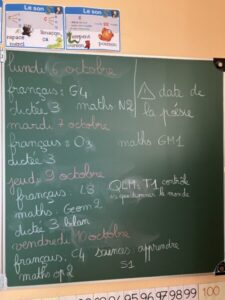 Le son
Le son
lundi 6 octobre
français : G4
dictée 3 maths N2
mardi 7 octobre
français : O3 maths GM1
dictée 3
jeudi 9 octobre
français : L3
maths : Geom 2
dictée 3 bilan
vendredi 10 octobre
français : C4 sciences apprendre
maths op 2 S1
⚠ date de
la poésie
QLM : T1 contrôle
questionner le monde
94 95 96 97 98 99 100